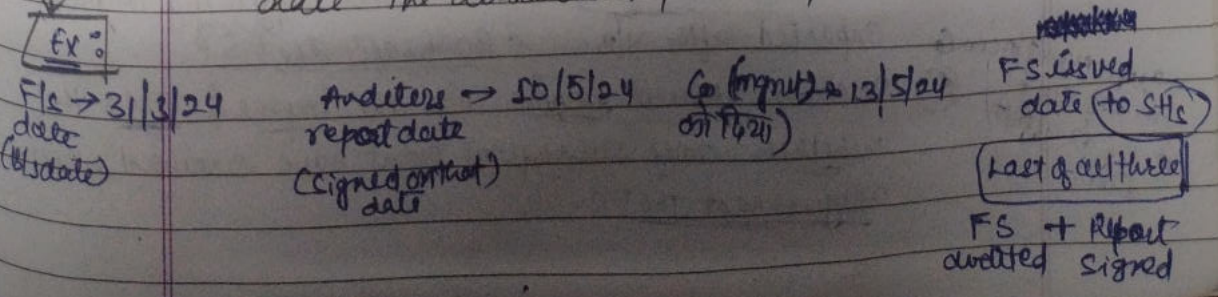 Ex:
F/s → 31/3/24
date
(B/s date)
Auditors → 10/5/24
report date
(signed on that)
date
Co (mgmt) → 13/5/24
को दिया)
FS issued
date (to SHs)
Last of all three
FS + Report
audited signed